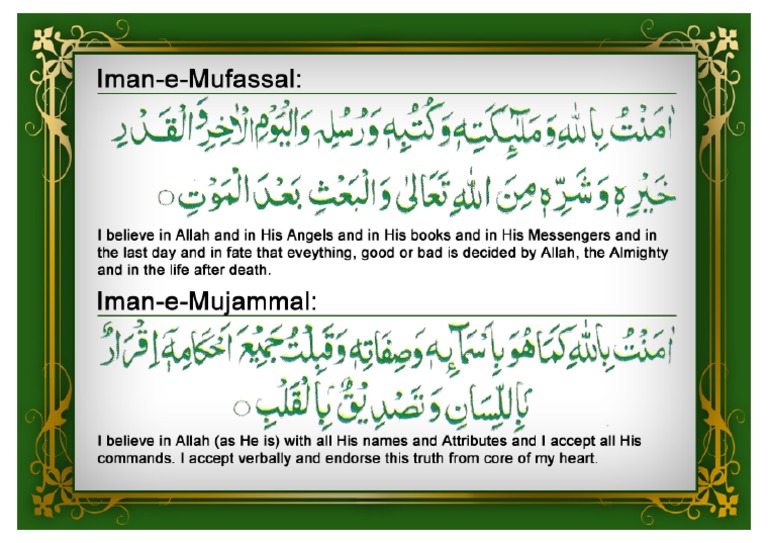 Iman-e-Mufassal:
اٰمَنْتُ بِاللهِ وَمَلٰٓئِكَتِهٖ وَكُتُبِهٖ وَرُسُلِهٖ وَالْيَوْمِ الْاٰخِرِ وَالْقَدْرِ
خَيْرِهٖ وَشَرِّهٖ مِنَ اللهِ تَعَالٰى وَالْبَعْثِ بَعْدَ الْمَوْتِ
I believe in Allah and in His Angels and in His books and in His Messengers and in
the last day and in fate that eveything, good or bad is decided by Allah, the Almighty
and in the life after death.
Iman-e-Mujammal:
اٰمَنْتُ بِاللهِ كَمَا هُوَ بِاَسْمَآئِهٖ وَصِفَاتِهٖ وَقَبِلْتُ جَمِيْعَ اَحْكَامِهٖٓ اِقْرَارٌ
بِاللِّسَانِ وَتَصْدِيْقٌ بِالْقَلْبِ
I believe in Allah (as He is) with all His names and Attributes and I accept all His
commands. I accept verbally and endorse this truth from core of my heart.